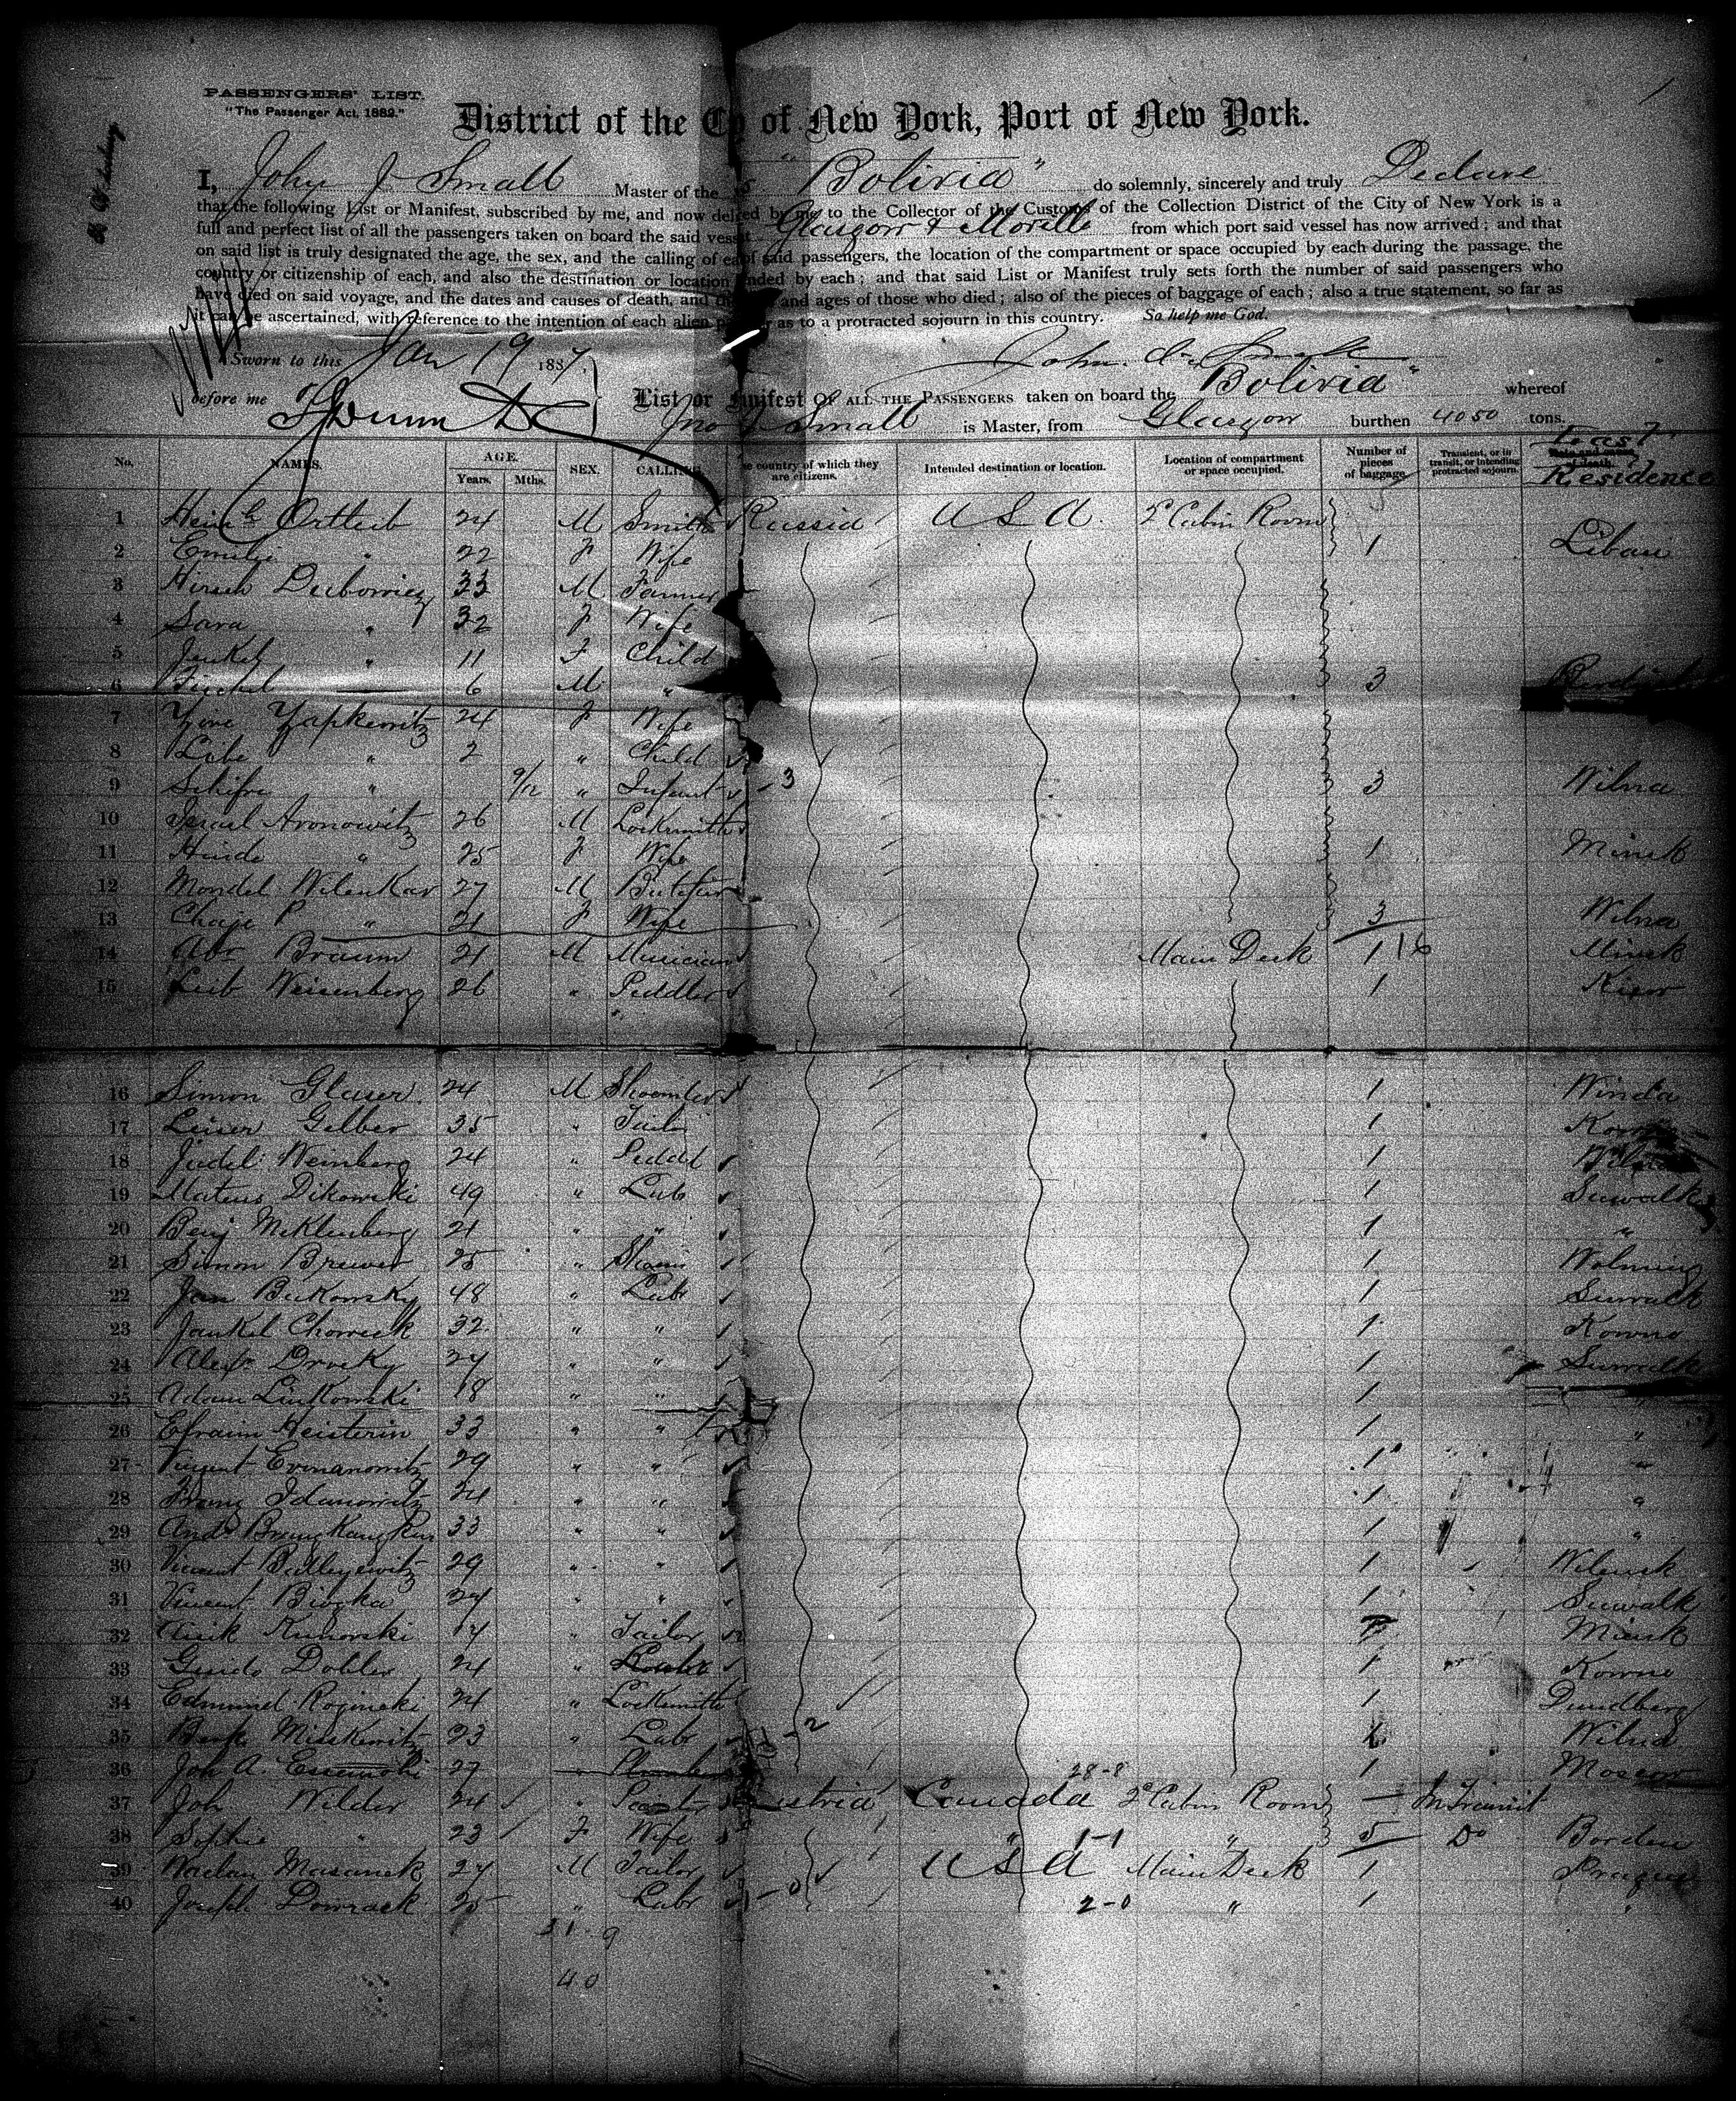 PASSENGERS' LIST.
"The Passenger Act, 1882."
District of the C of New York, Port of New York.
I, John J Small Master of the SS "Bolivia" do solemnly, sincerely and truly Declare
that the following List or Manifest, subscribed by me, and now del ed by me to the Collector of the Customs of the Collection District of the City of New York is a
full and perfect list of all the passengers taken on board the said vess Glasgow & Moville from which port said vessel has now arrived; and that
on said list is truly designated the age, the sex, and the calling of ea of said passengers, the location of the compartment or space occupied by each during the passage, the
country or citizenship of each, and also the destination or location nded by each; and that said List or Manifest truly sets forth the number of said passengers who
have died on said voyage, and the dates and causes of death, and and ages of those who died; also of the pieces of baggage of each; also a true statement, so far as
it can be ascertained, with reference to the intention of each alien p r as to a protracted sojourn in this country. So help me God.
Sworn to this Jan 19 1887. John J. Small
before me List or nifest OF ALL THE PASSENGERS taken on board the "Bolivia" whereof
Jno J Small is Master, from Glasgow burthen 4050 tons.
No. NAMES. AGE. Years. Mths. SEX. CALLING e country of which they are citizens. Intended destination or location. Location of compartment or space occupied. Number of pieces of baggage. Transient, or in transit, or intending protracted sojourn. Last Residence
1 Heinh Ortleib 24 M Smith Russia USA. 2d Cabin Room
2 Emilie " 22 F Wife 1 Libau
3 Hirsch Dubowiez 33 M Farmer
4 Sara " 32 F Wife
5 Jankel " 11 F Child
6 Fischel 6 M " 3
7 Zive Yapkewitz 24 F Wife
8 Lebe " 2 " Child
9 Schifre " 9/12 " Infant - 3 3 Wilna
10 Israel Aronowitz 26 M Locksmith
11 Hinde " 25 F Wife 1 Minsk
12 Mendel Wilenkar 27 M Butcher
13 Chaje P " 21 F Wife 3 Wilna
14 Abr Braum 21 M Musician Main Deck 1 16 Minsk
15 Leib Weisenberg 26 " Peddler 1 Kiew
16 Simon Glaser 24 M Shoemker 1 Winda
17 Leiser Gelber 35 " Tailr 1 Kowno
18 Judel Weinberg 24 " Peddl 1 Wilna
19 Mateus Dikowski 49 " Lab 1 Suwalk
20 Benj Meklenberg 21 " " 1 "
21 Simon Brewer 25 " Shoem 1
22 Jan Bukowsky 48 " Labr 1 Suwalk
23 Jankel Choreck 32 " " 1 Kowno
24 Alexr Drocky 24 " " 1 Suwalk
25 Adam Linkowski 18 " " 1 "
26 Efraim Keisterin 33 " " 1 "
27 Vincent Ermanowitz 29 " " 1 "
28 Franz Idanowitz 24 " " 1 "
29 Andr 33 " " 1 "
30 Vincent 29 " " 1 Wilensk
31 Vincent Biozka 24 " " 1 Suwalk
32 Kunorski 17 " Tailor Minsk
33 Guido Dobler 24 " 1 Kowno
34 Edmund Roginski 24 " Locksmith 1 Dundberg
35 Berk Miskewitz 23 " Labr - 2 1 Wilna
36 Joh A. 27 28-8 1 Moscow
37 Joh Wilder 24 " stria Canada 2d Cabin Room — In Transit
38 Sophie " 23 F Wife " 1-1 " 5 Do Borden
39 Waclav Masanek 27 M Tailor USA Main Deck 1 Prague
40 Joseph Dowrack 25 " Labr - 0 2-0 " 1 "
31-9
40